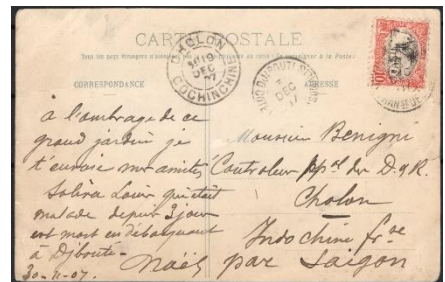 CARTE POSTALE
CORRESPONDANCE
ADRESSE
CHOLON
19
DEC
07
COCHINCHINE
DEC
à l'ombrage de ce
grand jardin je
t'envoie mes amitiés
Louis qui était
malade depuis 3 jours
est mort en débarquant
à Djibouti -
30-11-07.
Noël
Monsieur Benigni
Controleur ppal des D & R
Cholon
Indochine frse
par Saigon